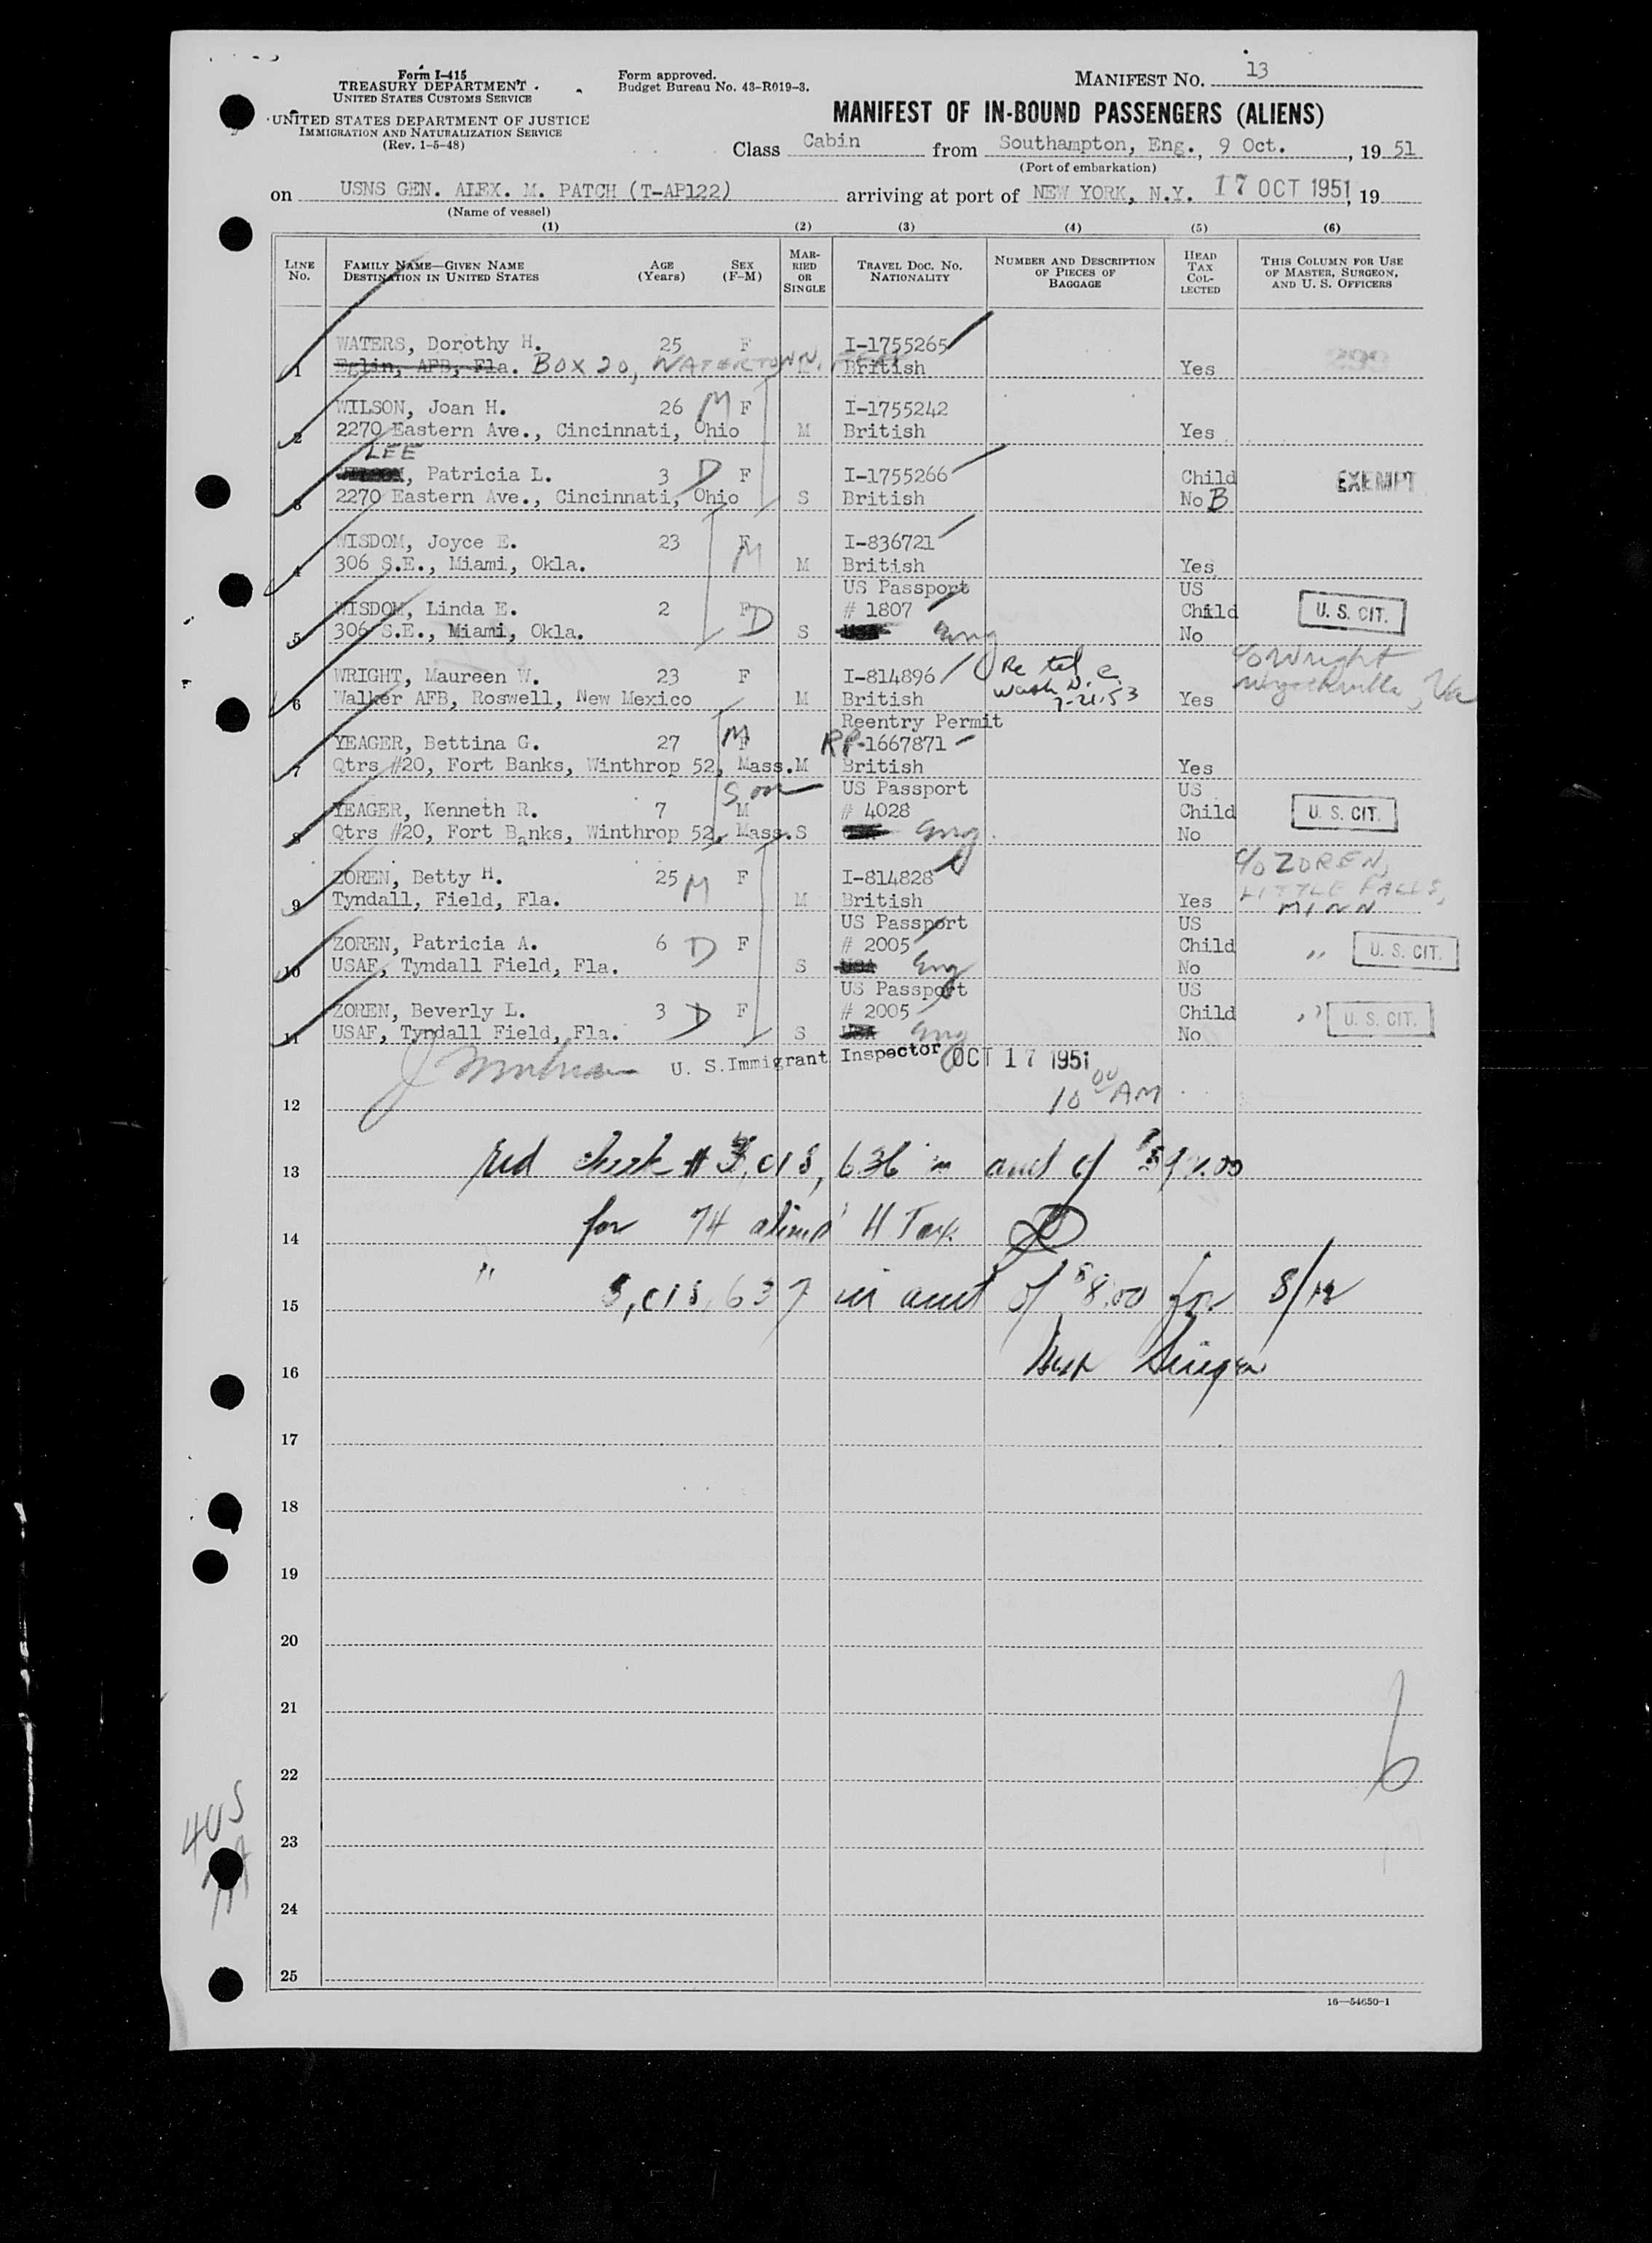 Form I-415
TREASURY DEPARTMENT
UNITED STATES CUSTOMS SERVICE
UNITED STATES DEPARTMENT OF JUSTICE
IMMIGRATION AND NATURALIZATION SERVICE
(Rev. 1-5-48)
Form approved.
Budget Bureau No. 43-R019-3.
MANIFEST NO. 13
MANIFEST OF IN-BOUND PASSENGERS (ALIENS)
Class Cabin from Southampton, Eng., 9 Oct., 19 51
(Port of embarkation)
on USNS GEN. ALEX. M. PATCH (T-AP122) arriving at port of NEW YORK, N.Y. 17 OCT 1951, 19
(Name of vessel)
(1) (2) (3) (4) (5) (6)
LINE NO. FAMILY NAME—GIVEN NAME DESTINATION IN UNITED STATES AGE (Years) SEX (F-M) MARRIED OR SINGLE TRAVEL DOC. NO. NATIONALITY NUMBER AND DESCRIPTION OF PIECES OF BAGGAGE HEAD TAX COLLECTED THIS COLUMN FOR USE OF MASTER, SURGEON, AND U. S. OFFICERS
WATERS, Dorothy H. 25 F I-1755265
1 Eglin, AFB, Fla. BOX 20, WATERTOWN, British Yes
WILSON, Joan H. 26 M F I-1755242
2 2270 Eastern Ave., Cincinnati, Ohio M British Yes
LEE
, Patricia L. 3 D F I-1755266 Child EXEMPT
3 2270 Eastern Ave., Cincinnati, Ohio S British No B
WISDOM, Joyce E. 23 F M I-836721
4 306 S.E., Miami, Okla. M British Yes
US Passport US
WISDOM, Linda E. 2 F D # 1807 Child U. S. CIT.
5 306 S.E., Miami, Okla. S Eng No
WRIGHT, Maureen W. 23 F I-814896 Re tel c/o Wright
6 Walker AFB, Roswell, New Mexico M British Wash D.C. 7-21-53 Yes Va
Reentry Permit
YEAGER, Bettina G. 27 M F RP-1667871
7 Qtrs #20, Fort Banks, Winthrop 52, Mass. M British Yes
Son US Passport US
YEAGER, Kenneth R. 7 M # 4028 Child U. S. CIT.
8 Qtrs #20, Fort Banks, Winthrop 52, Mass. S Eng. No
ZOREN, Betty H. 25 M F I-814828 c/o ZOREN,
9 Tyndall, Field, Fla. M British Yes LITTLE FALLS, MINN
US Passport US
ZOREN, Patricia A. 6 D F # 2005 Child " U. S. CIT.
10 USAF, Tyndall Field, Fla. S USA Eng No
US Passport US
ZOREN, Beverly L. 3 D F # 2005 Child " U. S. CIT.
11 USAF, Tyndall Field, Fla. S USA Eng No
U. S. Immigrant Inspector OCT 17 1951
12 10 00 AM
13 check # 636 in amt of
14 for 74 aliens' H Tax
15 " 637 in amt of $8.00 for
16
17
18
19
20
21
22
23
24
25
6
16—54650-1